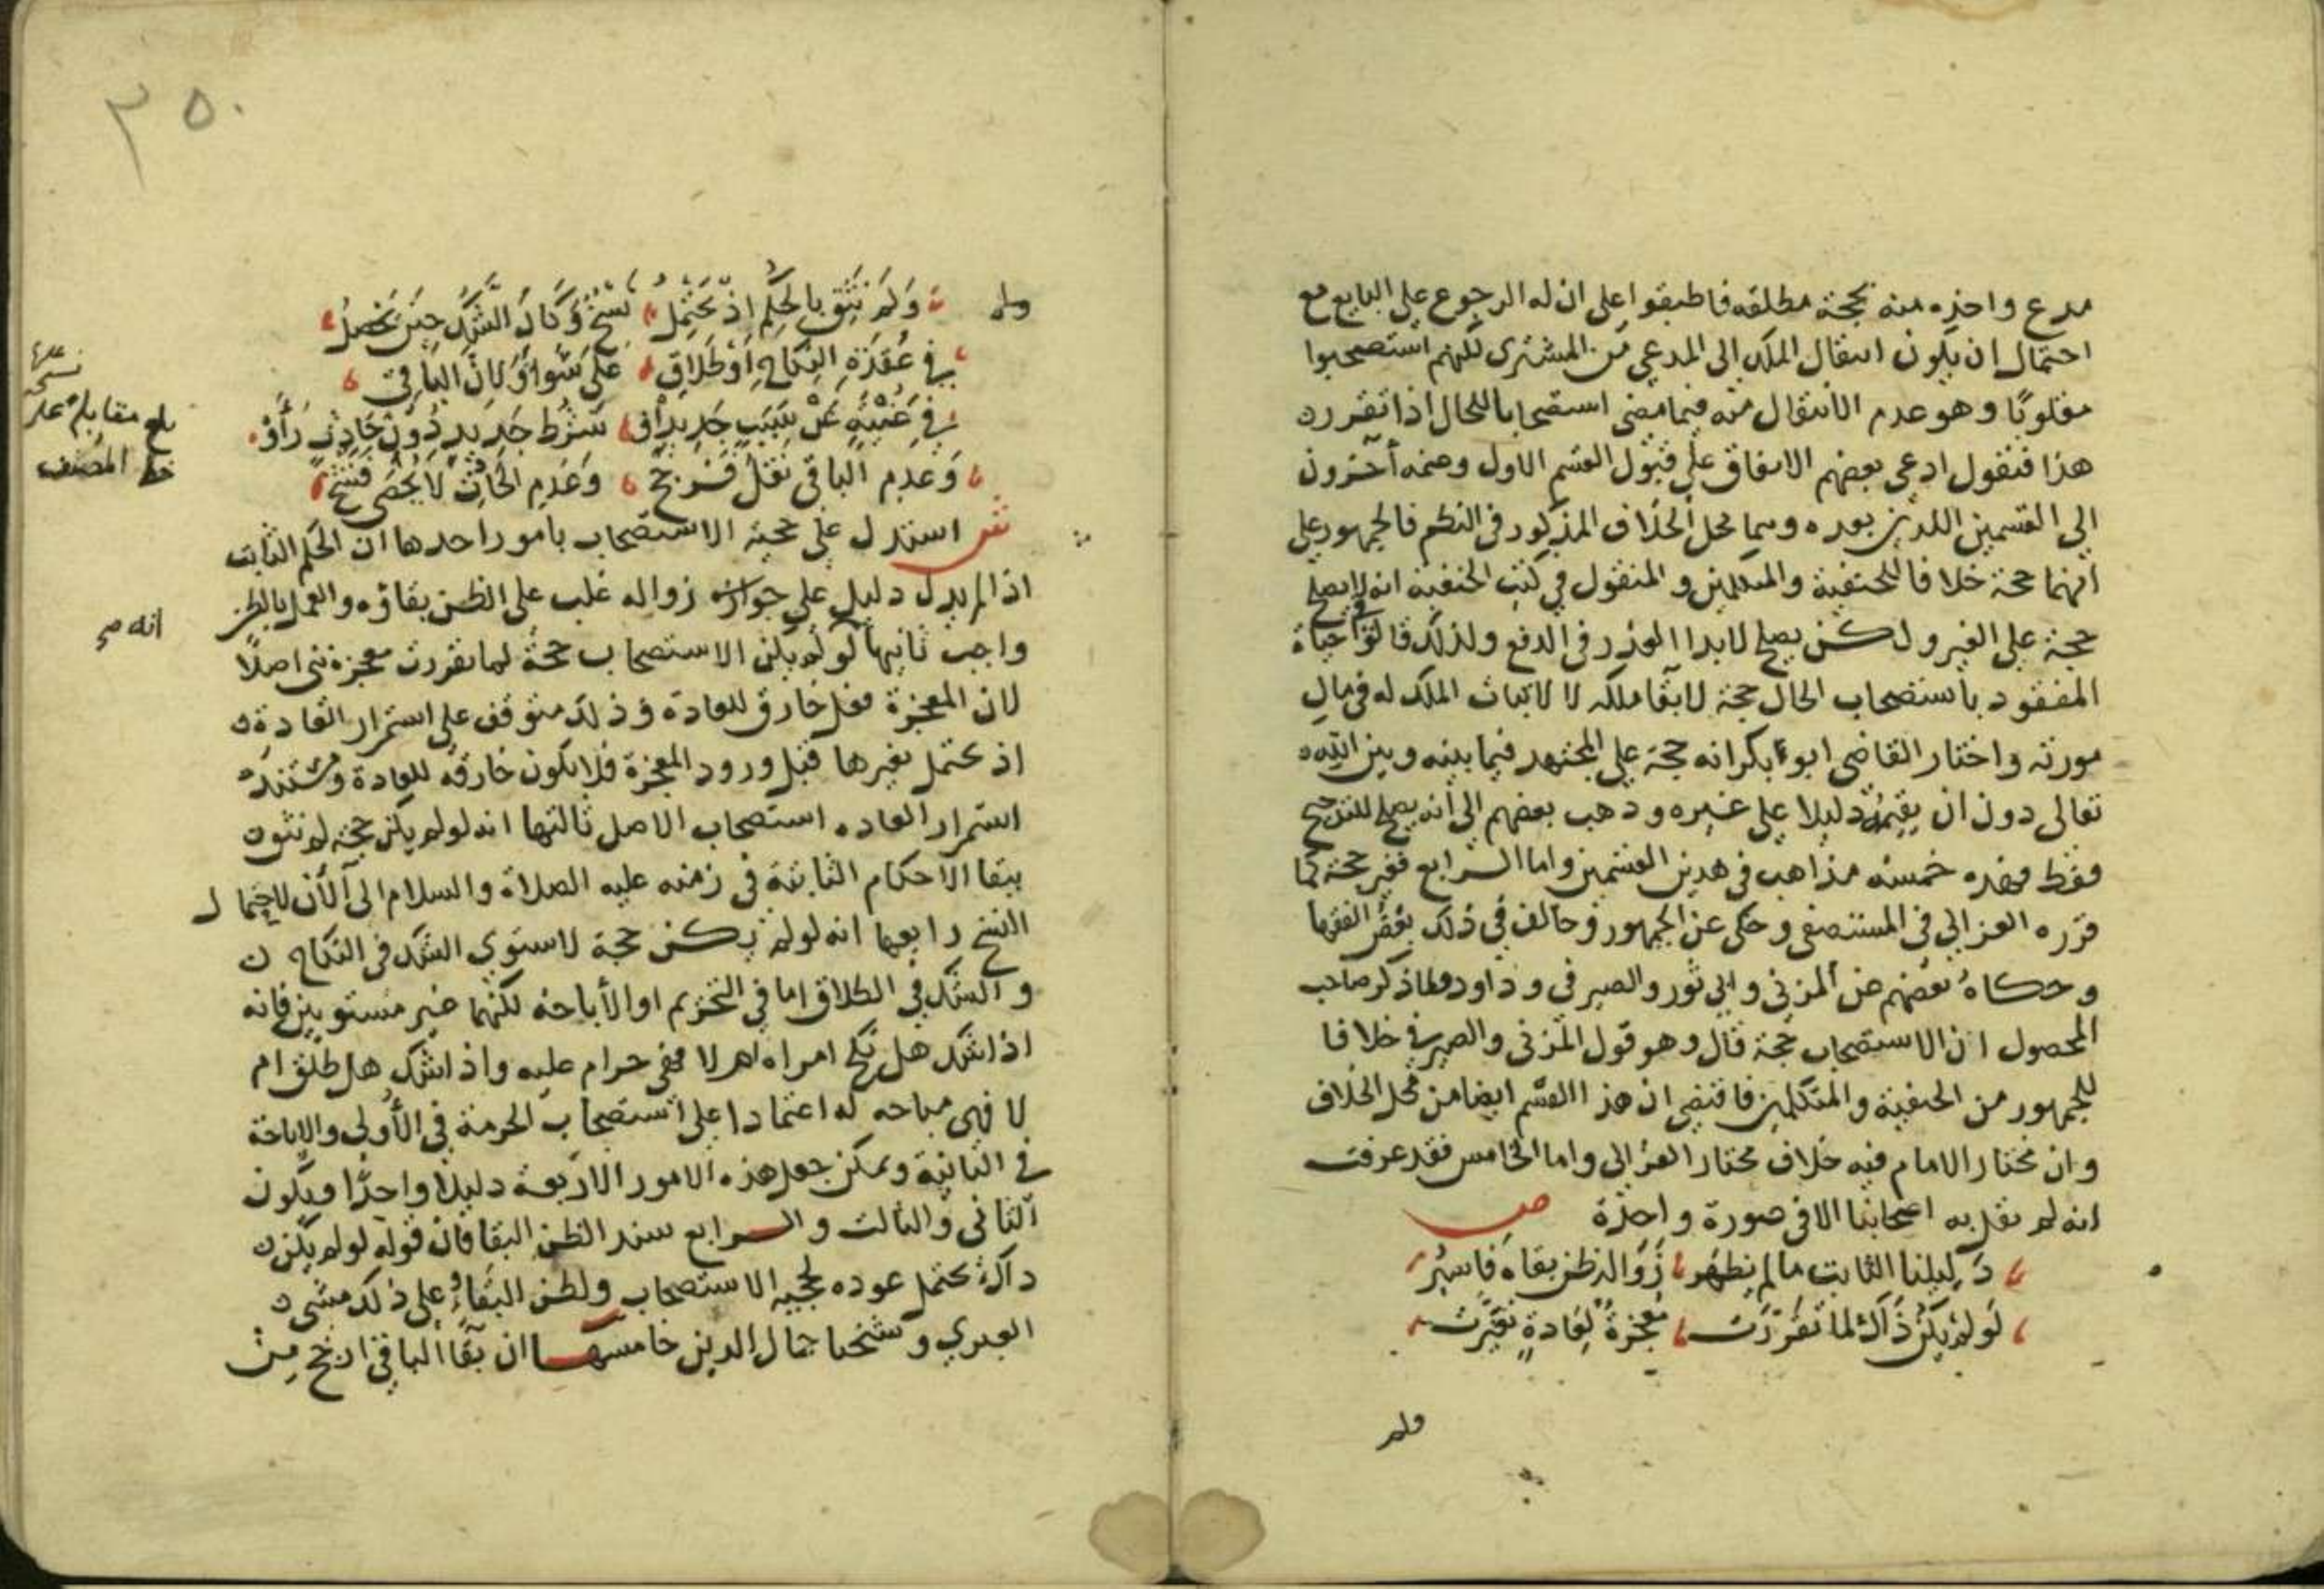 مدع واخذه منه بحجة مطلقه فاطبقوا على ان له الرجوع على البايع مع
احتمال ان يكون انتقال الملك الى المدعي من المشتري لكنهم استصحبوا
مقلوبًا وهو عدم الانتقال منه فيما مضى استصحابا للحال اذا تقرر
هذا فنقول ادعى بعضهم الاتفاق على قبول القسم الاول وضمه آخرون
الى القسمين اللذين بعده وهما محل الخلاف المذكور في النظم فالجمهور على
انهما حجة خلافا للحنفية والمتكلمين والمنقول في كتب الحنفية انه لا يصلح
حجة على الغير ولكن يصلح لابدا العذر في الدفع ولذلك قالوا حياة
المفقود باستصحاب الحال حجة لابقا ملكه لا لاثبات الملك له في مال
مورثه واختار القاضي ابو بكر انه حجة على المجتهد فيما بينه وبين الله
تعالى دون ان يقيمه دليلا على غيره وذهب بعضهم الى انه يصلح للترجيح
فقط فهذه خمسة مذاهب في هذين القسمين واما الرابع فغير حجة كما
قرره الغزالي في المستصفى وحكى عن الجمهور وخالف في ذلك بعض الفقها
وحكاه بعضهم عن المزني وابي ثور والصيرفي وداود ولما ذكر صاحب
المحصول ان الاستصحاب حجة قال وهو قول المزني والصيرفي خلافا
للجمهور من الحنفية والمتكلمين فاقتضى ان هذا القسم ايضا من محل الخلاف
وان مختار الامام فيه خلاف مختار الغزالي واما الخامس فقد عرفت
انه لم يقل به اصحابنا الا في صورة واحدة ص
دليلنا الثابت ما لم يظهر زوال ظن بقاه فاسبر
لو لم يكن ذاك لما تقررت معجزة لعادة تغيرت
ولم
٣٥٠
ولم
ولم نثق بالحكم اذ يحتمل نسخ وكان الشك حين يحصل
في عقدة النكاح او طلاق على سواء وكان الباقي
في غنية عن سبب جديد او شرط جديد دون حادث رأوا
وعدم الباقي نقل فرجح وعدم الحادث لا يحصى فتنح
بلغ مقابلة على نسخة عليها
خط المصنف
ش استدل على حجية الاستصحاب بامور احدها ان الحكم الثابت
اذا لم يدل دليل على جواز زواله غلب على الظن بقاؤه والعمل بالظن
انه صح
واجب ثانيها لو لم يكن الاستصحاب حجة لما تقررت معجزة نبي اصلًا
لان المعجزة فعل خارق للعادة وذلك متوقف على استمرار العادة
اذ يحتمل تغيرها قبل ورود المعجزة فلا يكون خارقه للعادة ومستند
استمرار العاده استصحاب الاصل ثالثها انه لو لم يكن حجة لم نثق
ببقا الاحكام الثابتة في زمنه عليه الصلاة والسلام الى الآن لاحتمال
النسخ رابعها انه لو لم يكن حجة لاستوى الشك في النكاح
والشك في الطلاق اما في التحريم او الأباحة لكنهما غير مستويين فانه
اذا شك هل نكح امراه ام لا فهي حرام عليه واذا شك هل طلق ام
لا فهي مباحه له اعتمادا على استصحاب الحرمة في الأولى والاباحة
في الثانية ويمكن جعل هذه الامور الاربعة دليلا واحدًا ويكون
الثاني والثالث والرابع سند الظن البقا فان قوله لو لم يكن
ذاك يحتمل عوده لحجية الاستصحاب ولظن البقاء وعلى ذلك مشى
العبري وشيخنا جمال الدين خامسها ان بقا الباقي ارجح من